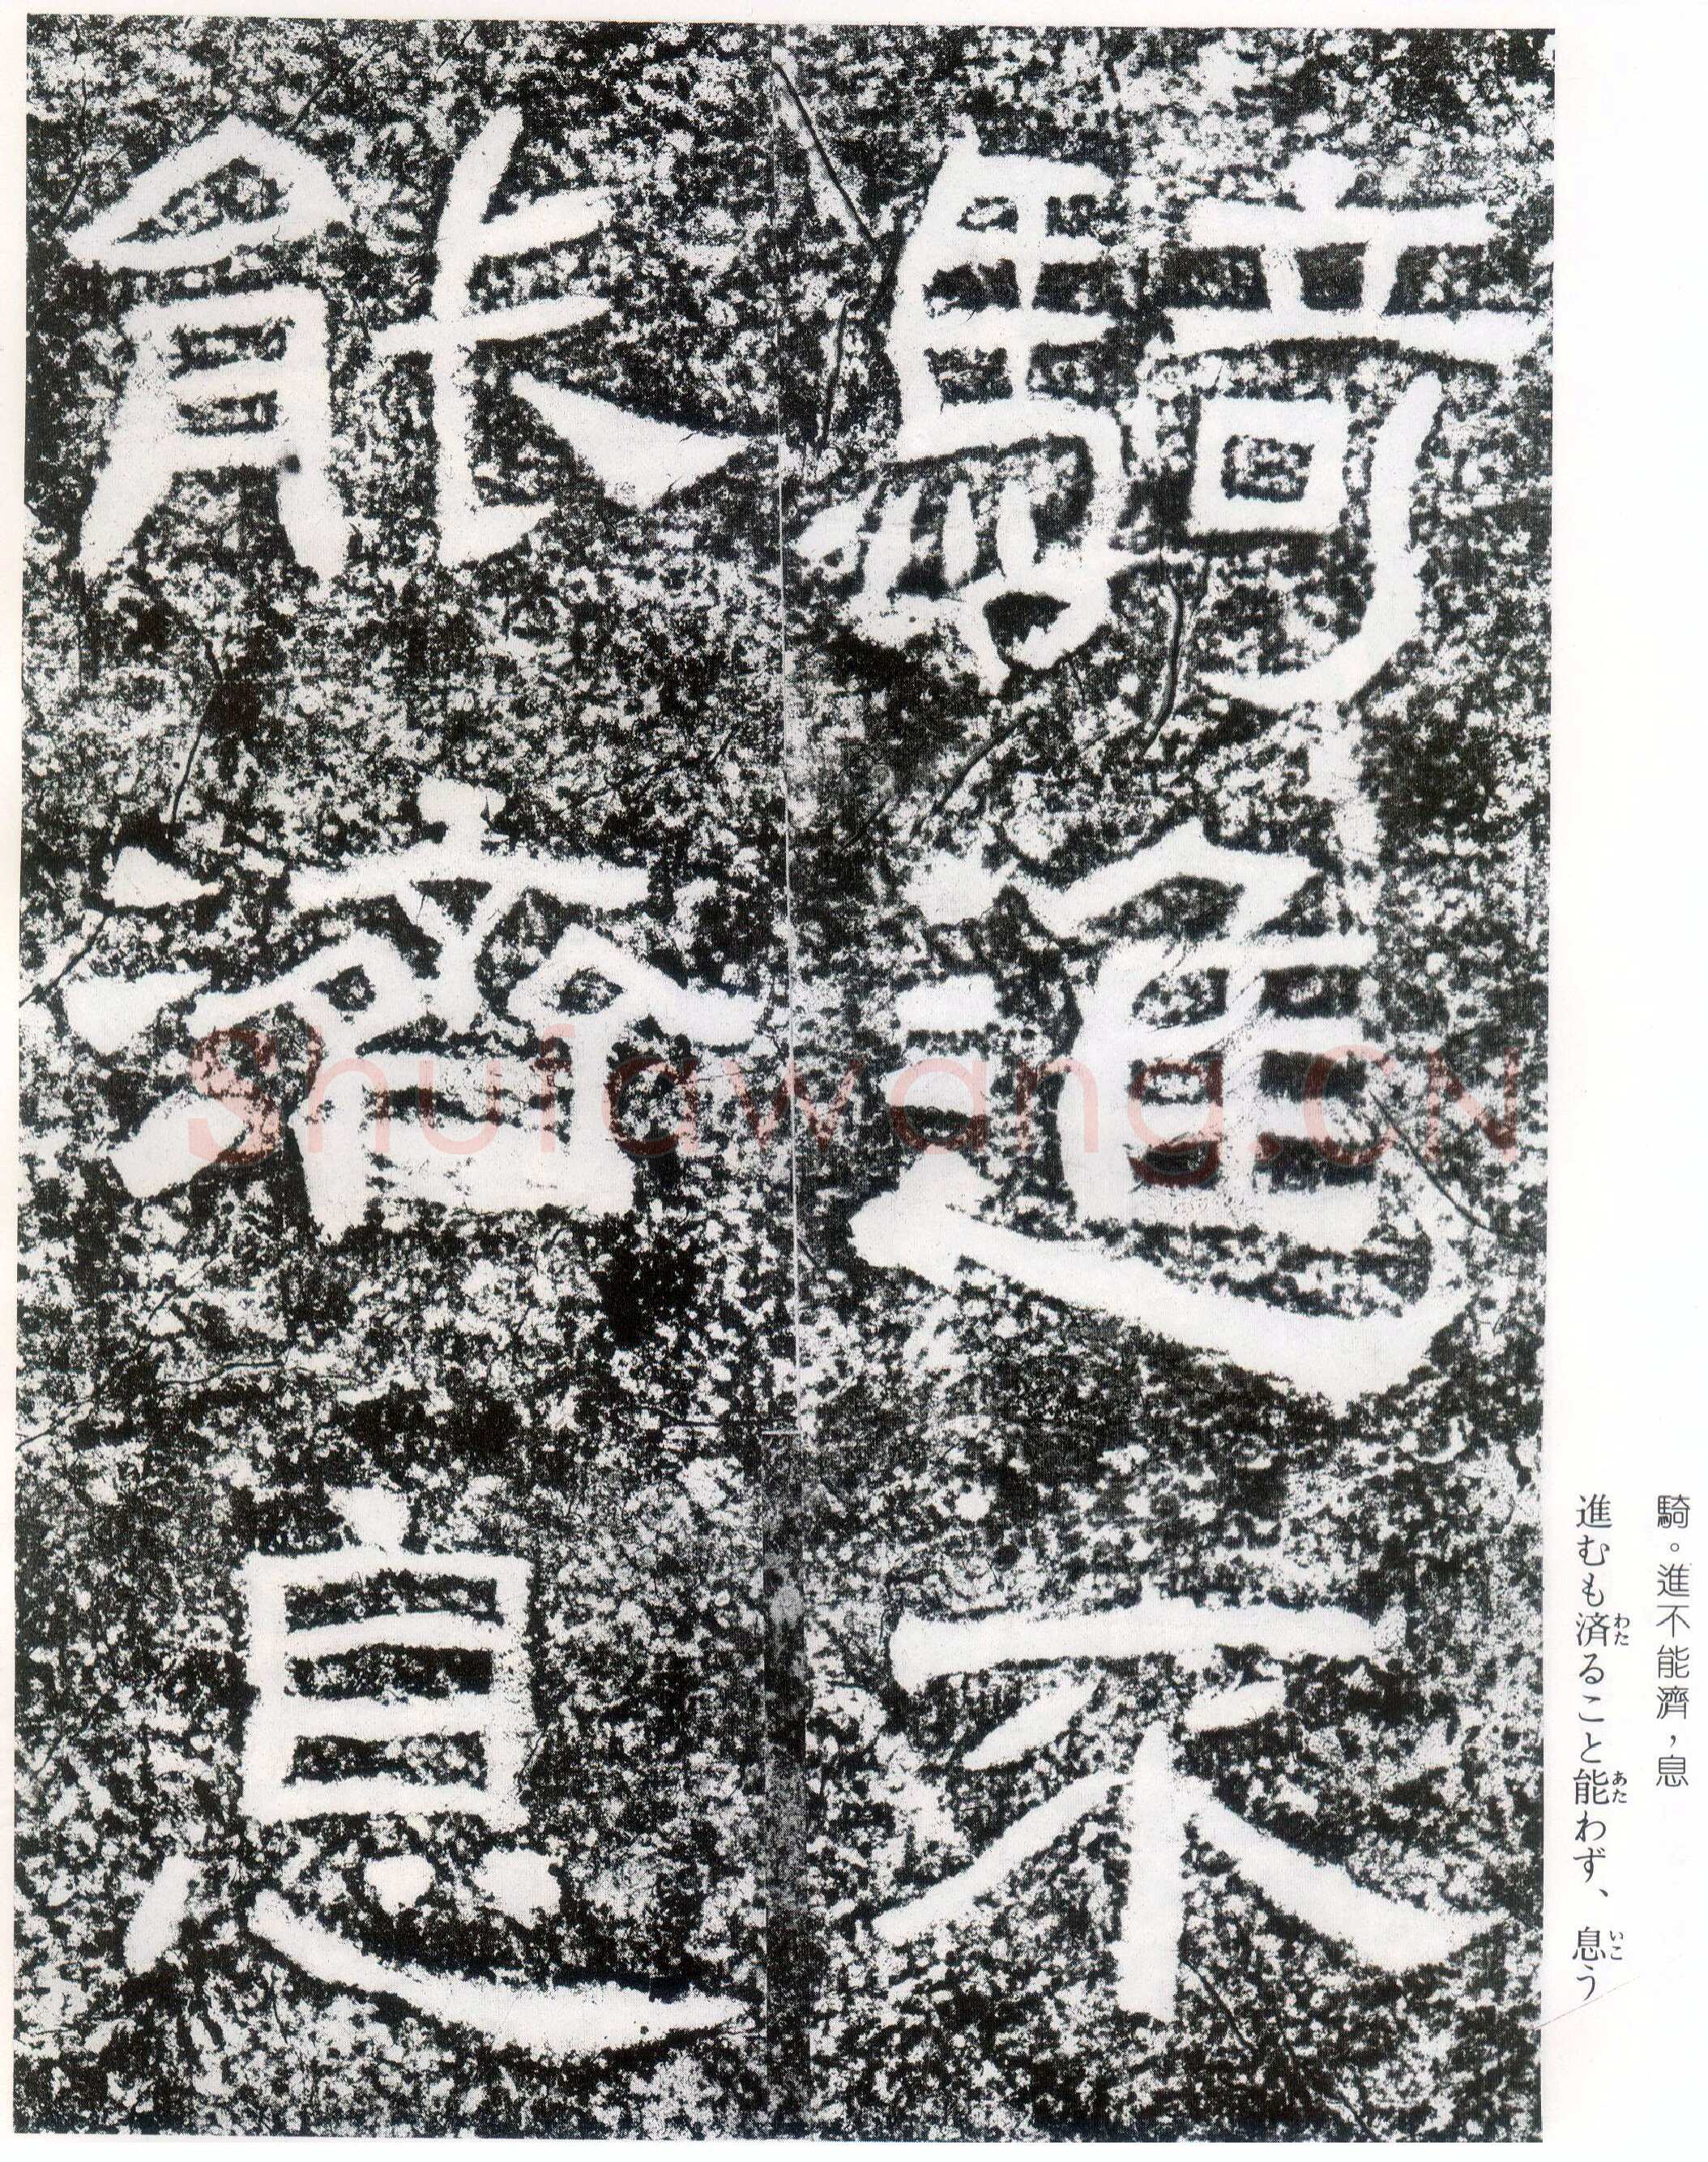 騎進不
能濟息
騎。進不能濟，息
進むも済ることと能わず、息う
わた
あた
いこ
Shufawang.CN